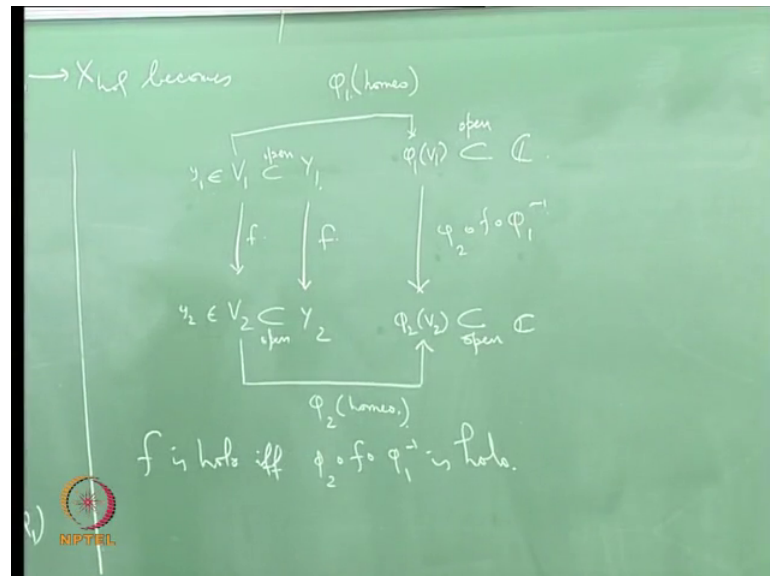 → X_hol becomes
φ₁ (homeo)
y₁ ∈ V₁ ⊂ Y₁ φ₁(V₁) ⊂ ℂ.
open open
↓ f. ↓ f. ↓ φ₂ ∘ f ∘ φ₁⁻¹
y₂ ∈ V₂ ⊂ Y₂ φ₂(V₂) ⊂ ℂ
open open
φ₂ (homeo.)
f is holo iff φ₂ ∘ f ∘ φ₁⁻¹ is holo.
NPTEL